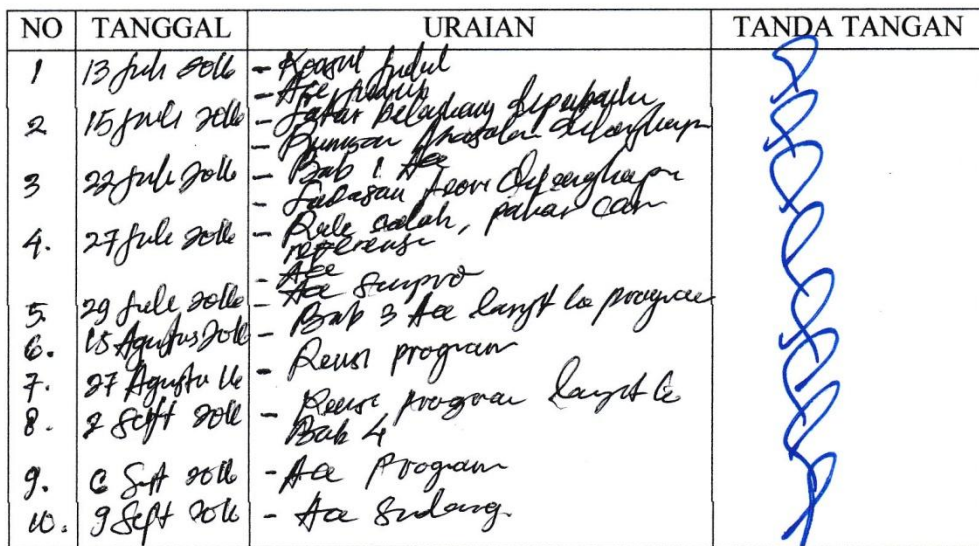 NO TANGGAL URAIAN TANDA TANGAN
1 13 Juli 2016 - Konsul Judul
- Acc Judul
2 15 Juli 2016 - Latar belakang diperbaiki
- Rumusan Masalah dilengkapi
3 22 Juli 2016 - Bab 1 Acc
- Landasan Teori dilengkapi
4. 27 Juli 2016 - Rule salah, pakar cari
referensi
- Acc
5. 29 Juli 2016 - Acc Sempro
6. 15 Agustus 2016 - Bab 3 Acc lanjt ke program
7. 27 Agustu 16 - Revisi program
8. 2 Sept 2016 - Revisi program lanjt ke
Bab 4
9. 6 Spt 2016 - Acc Program
10. 9 Sept 2016 - Acc Sidang.